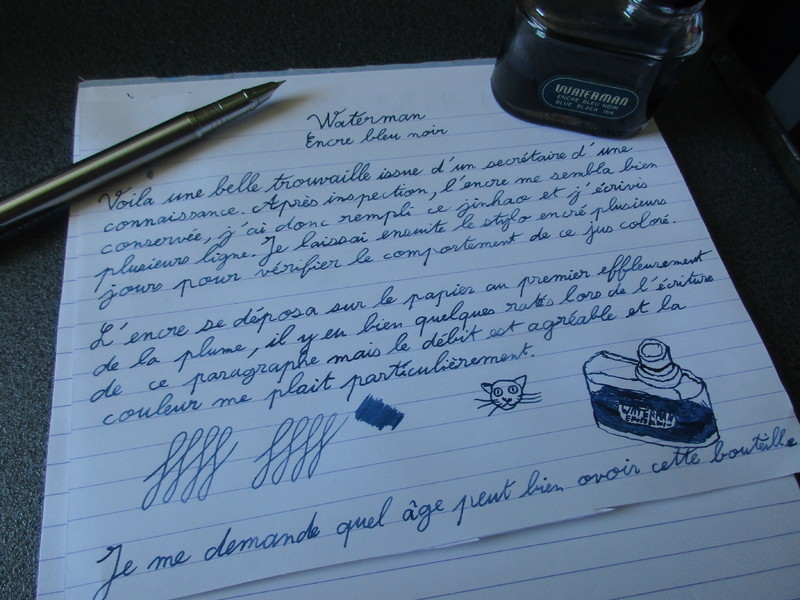 WATERMAN
ENCRE BLEU NOIR
BLUE BLACK INK
Waterman
Encre bleu noir
Voila une belle trouvaille issue d'un secrétaire d'une
connaissance. Après inspection, l'encre me sembla bien
conservée, j'ai donc rempli ce jinhao et j'écrivis
plusieurs ligne. Je laissai ensuite le stylo encré plusieurs
jours pour vérifier le comportement de ce jus coloré.
L'encre se déposa sur le papier au premier effleurement
de la plume, il y eu bien quelques ratés lors de l'écriture
de ce paragraphe mais le débit est agréable et la
couleur me plait particulièrement.
WATERMAN
Je me demande quel âge peut bien avoir cette bouteille